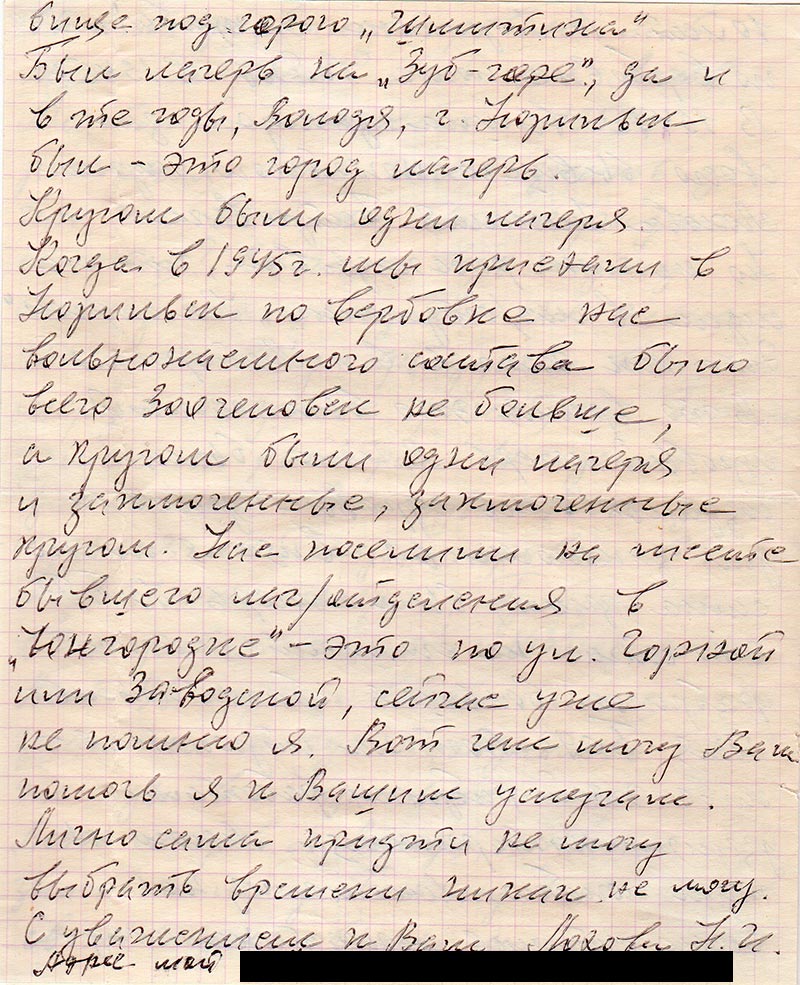 бище под горою „Шмитиха"
Был лагерь на „Зуб-горе", да и
в те годы, Володя, г. Норильск
был – это город лагерь.
Кругом были одни лагеря.
Когда в 1945г. мы приехали в
Норильск по вербовке нас
вольнонаемного состава было
всего 300человек не больше,
а кругом были одни лагеря
и заключенные, заключенные
кругом. Нас поселили на месте
бывшего лаг/отделения в
– это по ул. Горной
или Заводской, сейчас уже
не помню я. Вот чем могу Вам
помочь я к Вашим услугам.
Лично сама придти не могу
выбрать времени никак не могу.
С уважением к Вам Н.И.
Адрес мой